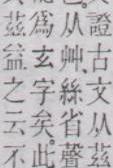 證古文从茲
从艸、絲省聲
爲玄字矣。此
茲益之云不